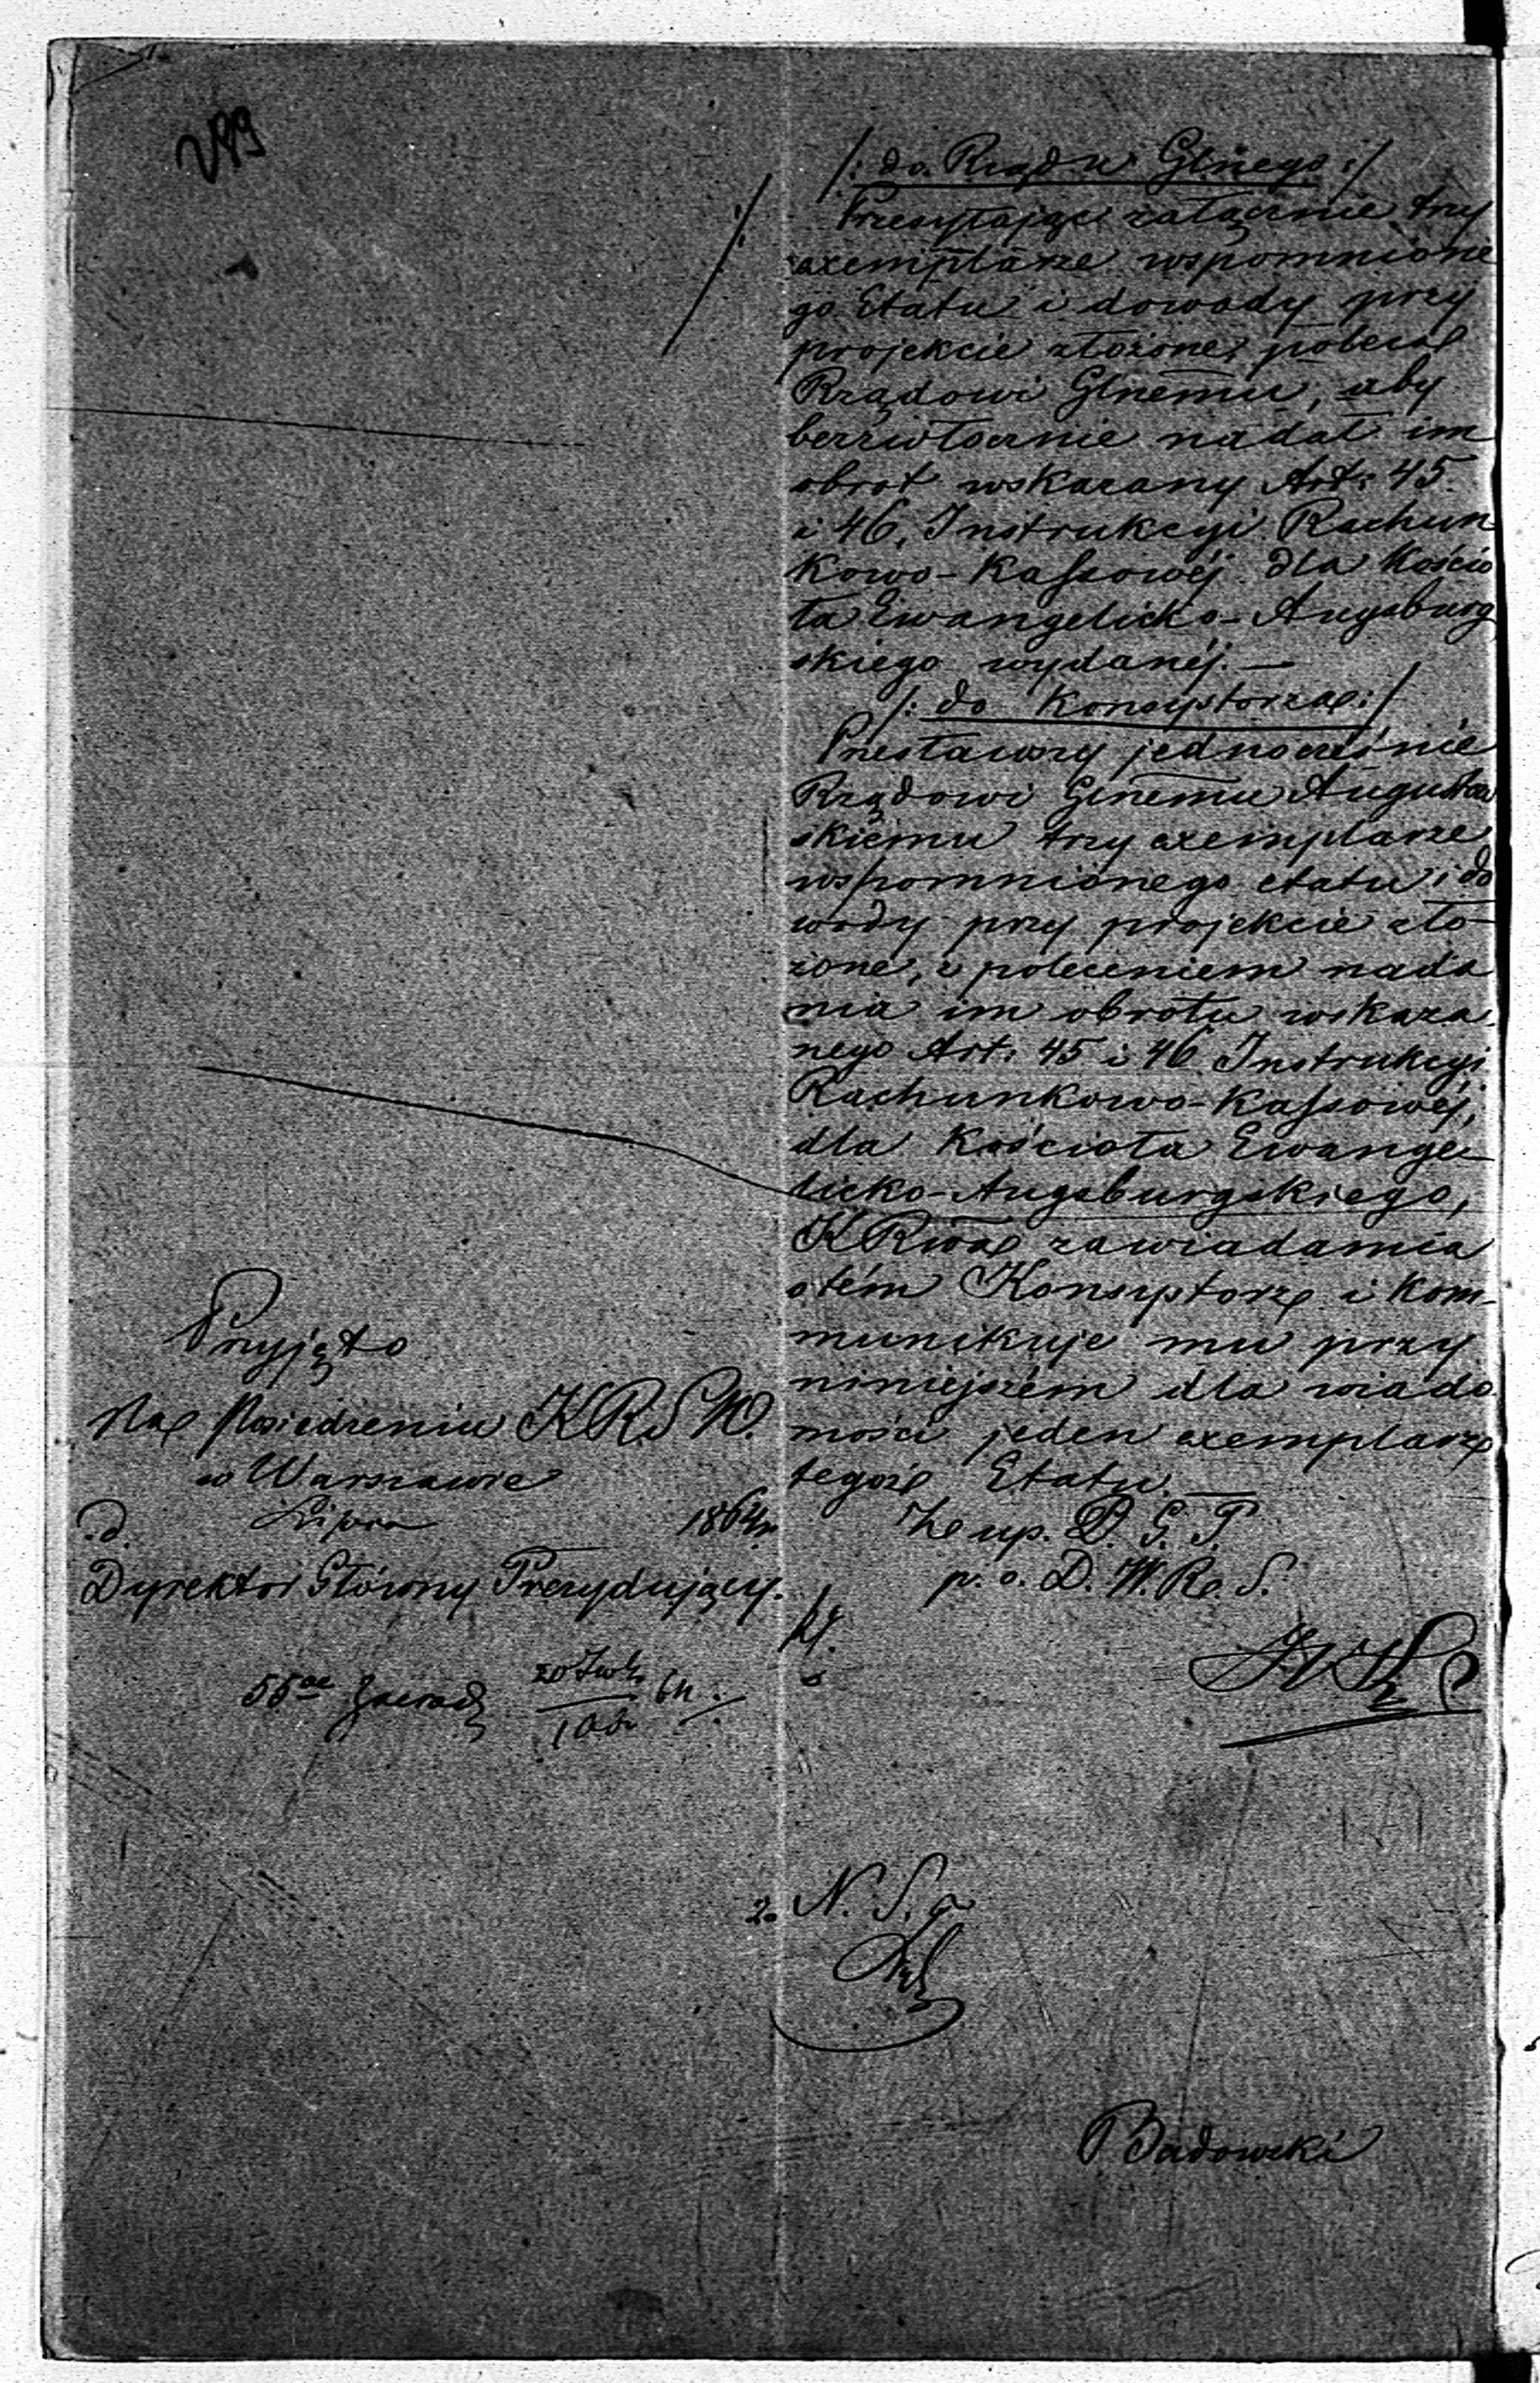 289
/: do Rządu Glnego :/
Przesyłając załącznie trzy
exemplarze wspomnione
go Etatu i dowody przy
projekcie złożone, poleca
Rządowi Glnemu, aby
bezzwłocznie nadał im
obrot wskazany Art: 45
i 46, Instrukcyi Rachun
kowo-Kassowéj dla Kościo
ła Ewangelicko-Augsburg
skiego wydanéj. —
/: do Konsystorza :/
Przesławszy jednocześnie
Rządowi Glnemu Augustow
skiemu trzy exemplarze
wspomnionego etatu i do
wody przy projekcie zło-
żone, z poleceniem nada
nia im obrotu wskaza
nego Art: 45 i 46 Instrukcyi
Rachunkowo-Kassowéj,
dla Kościoła Ewange-
licko-Augsburgskiego,
KRwa zawiadamia
o tém Konsystorz i kom-
munikuje mu przy
niniejszém dla wiado
mości jeden exemplarz
tegoż Etatu. —
Z up. D. G. P.
p. o. D. W. R. S.
Przyjęto
Na Posiedzeniu KRSW.
w Warszawie
d. Lipca 1864 r.
Dyrektor Główny Prezydujący.
2. N. S.
Badowski